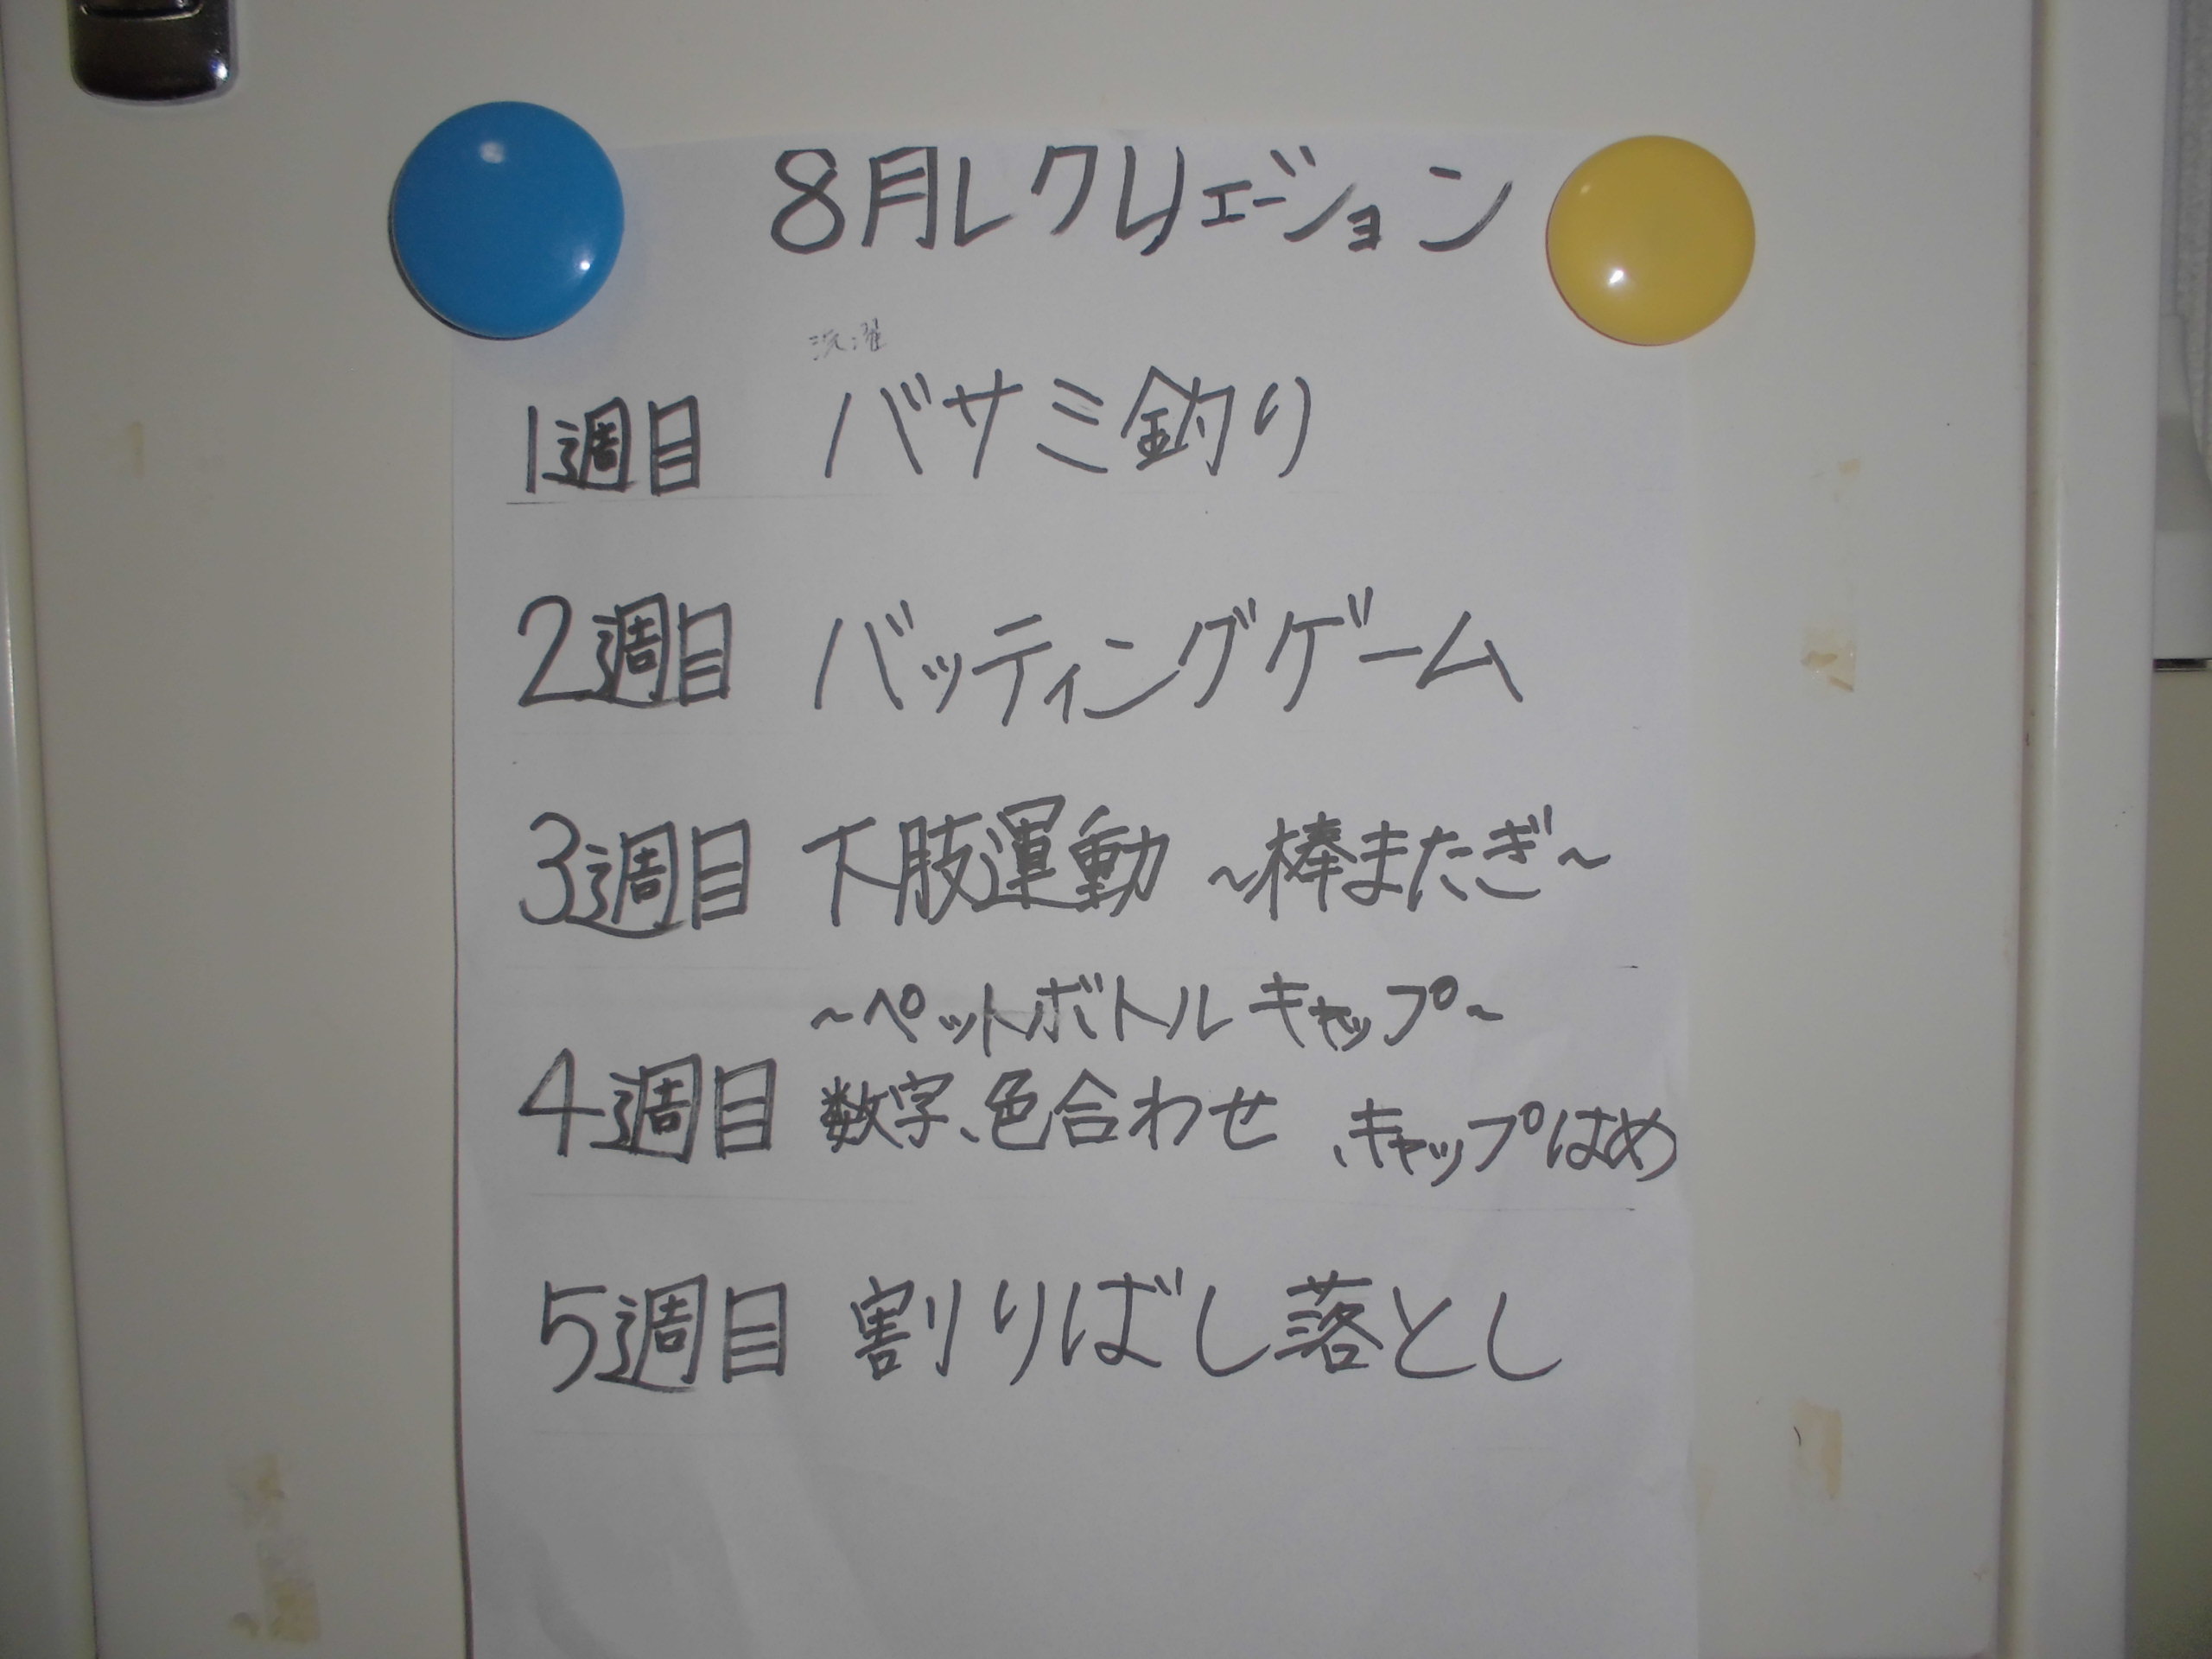 8月レクリェーション
洗濯
1週目 バサミ釣り
2週目 バッティングゲーム
3週目 下肢運動 ~棒またぎ~
~ペットボトルキャップ~
4週目 数字、色合わせ、キャップはめ
5週目 割りばし落とし